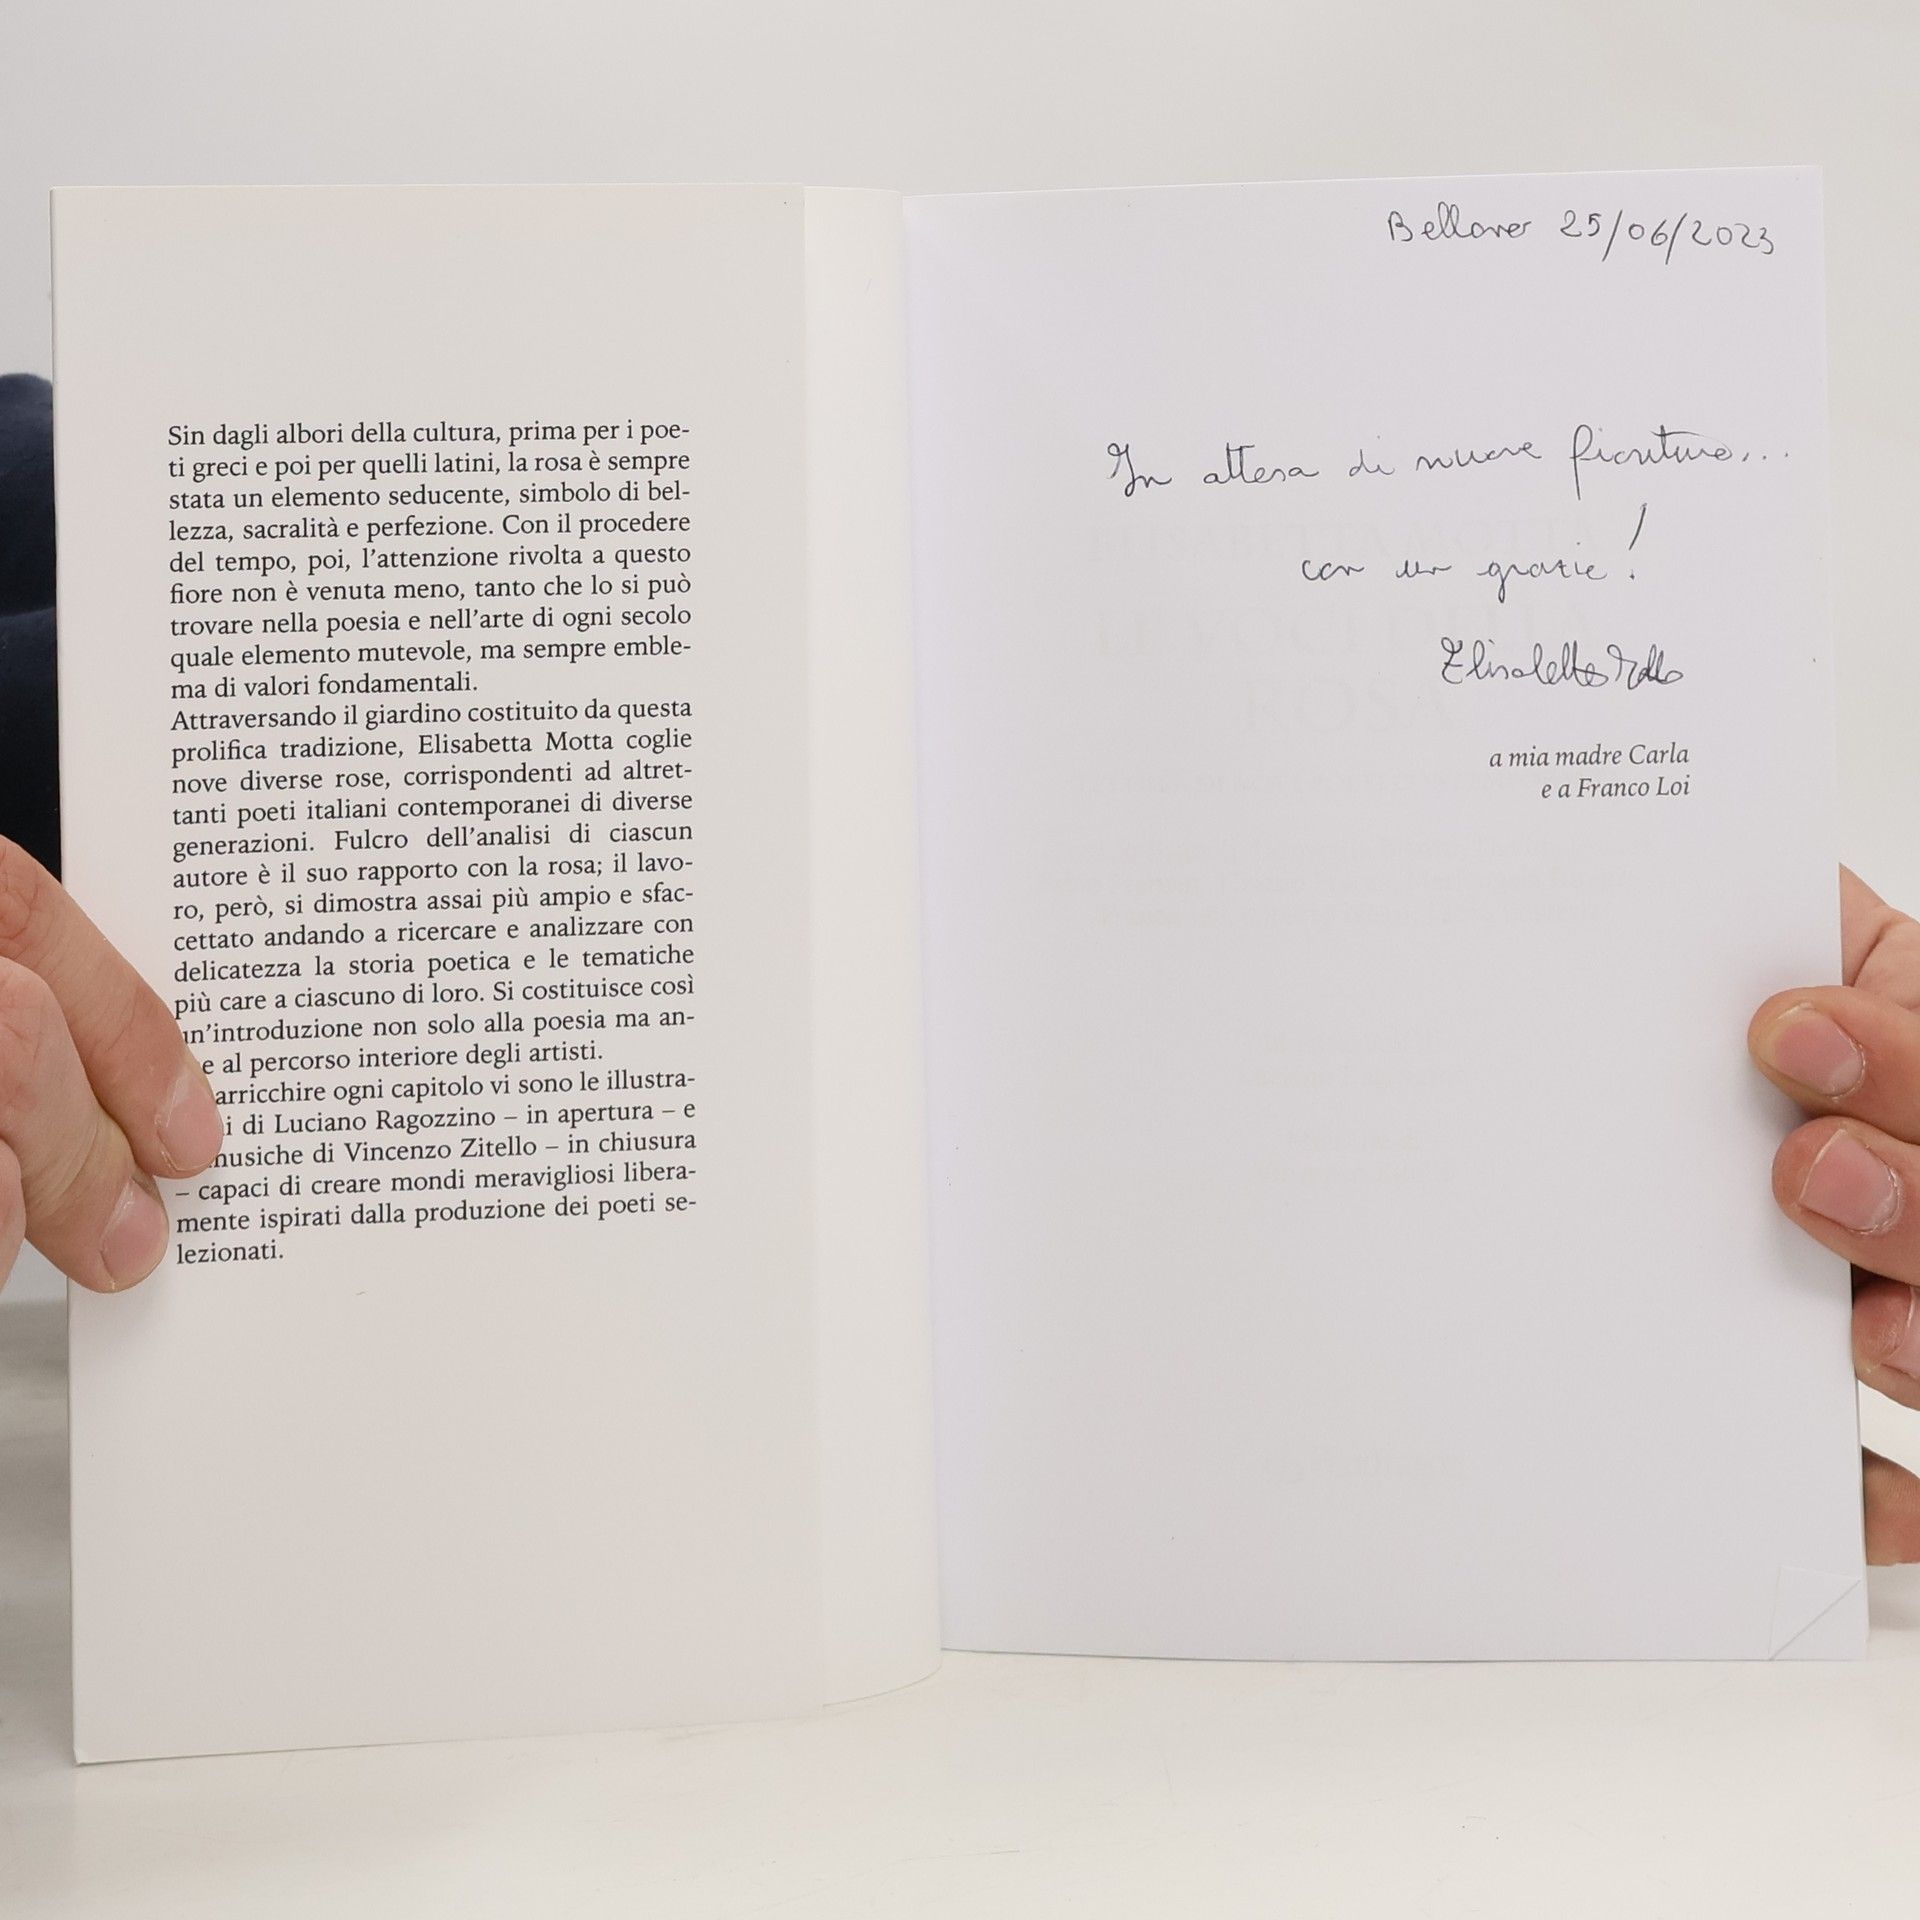 Sin dagli albori della cultura, prima per i poe-
ti greci e poi per quelli latini, la rosa è sempre
stata un elemento seducente, simbolo di bel-
lezza, sacralità e perfezione. Con il procedere
del tempo, poi, l'attenzione rivolta a questo
fiore non è venuta meno, tanto che lo si può
trovare nella poesia e nell'arte di ogni secolo
quale elemento mutevole, ma sempre emble-
ma di valori fondamentali.
Attraversando il giardino costituito da questa
prolifica tradizione, Elisabetta Motta coglie
nove diverse rose, corrispondenti ad altret-
tanti poeti italiani contemporanei di diverse
generazioni. Fulcro dell'analisi di ciascun
autore è il suo rapporto con la rosa; il lavo-
ro, però, si dimostra assai più ampio e sfac-
cettato andando a ricercare e analizzare con
delicatezza la storia poetica e le tematiche
più care a ciascuno di loro. Si costituisce così
un'introduzione non solo alla poesia ma an-
e al percorso interiore degli artisti.
arricchire ogni capitolo vi sono le illustra-
i di Luciano Ragozzino – in apertura – e
musiche di Vincenzo Zitello – in chiusura
– capaci di creare mondi meravigliosi libera-
mente ispirati dalla produzione dei poeti se-
lezionati.
25/06/2023
In attesa di nuove fioriture...
con un grazie!
Elisabetta Motta
a mia madre Carla
e a Franco Loi